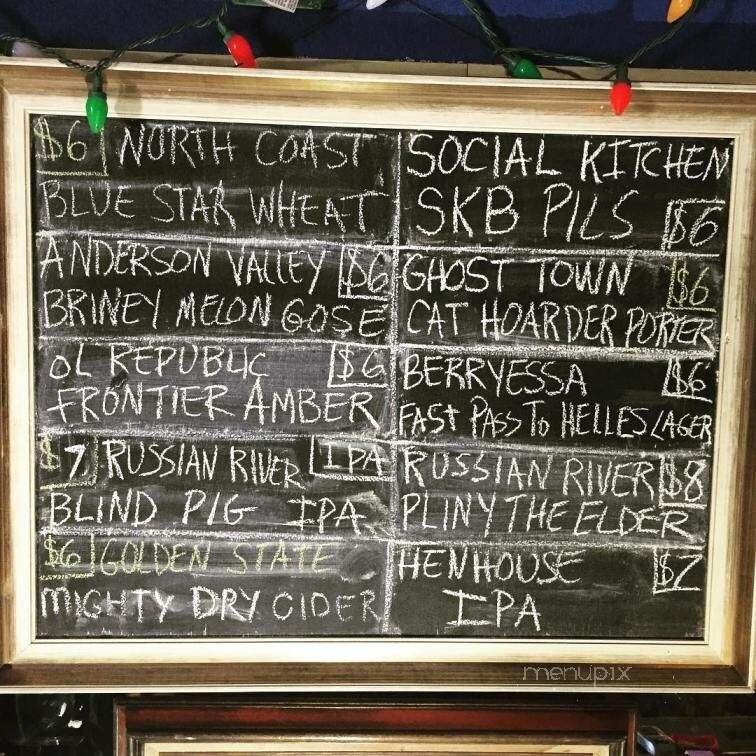 $6 NORTH COAST
BLUE STAR WHEAT
ANDERSON VALLEY $6
BRINEY MELON GOSE
OL REPUBLIC $6
FRONTIER AMBER
$7 RUSSIAN RIVER IPA
BLIND PIG IPA
$6 GOLDEN STATE
MIGHTY DRY CIDER
SOCIAL KITCHEN
SKB PILS $6
GHOST TOWN $6
CAT HOARDER PORTER
BERRYESSA $6
FAST PASS TO HELLES LAGER
RUSSIAN RIVER $8
PLINY THE ELDER
HENHOUSE $7
IPA
menupix